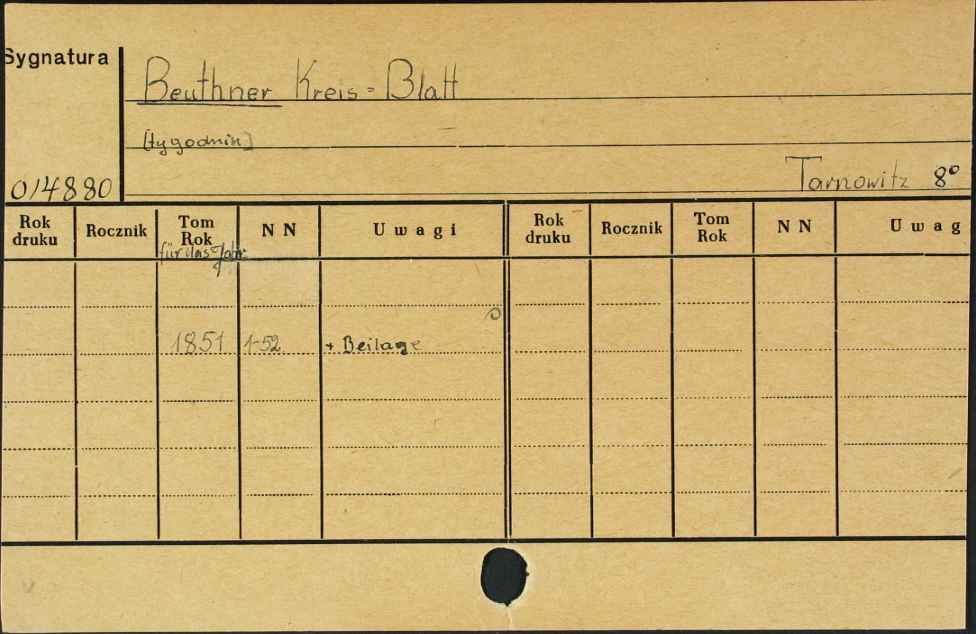 Sygnatura
Beuthner Kreis=Blatt
[tygodnik]
Tarnowitz 8°
014880
Rok druku Rocznik Tom Rok NN Uwagi Rok druku Rocznik Tom Rok NN Uwag
für das Jahr
1851 1-52 + Beilage